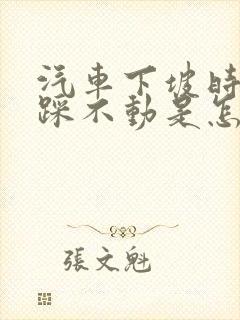 汽車下坡時
踩不動是怎
張文魁